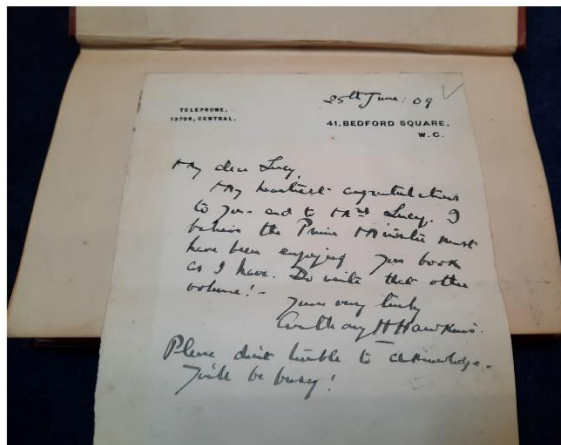 25th June: 09
TELEPHONE.
13706, CENTRAL.
41, BEDFORD SQUARE,
W. C.
My dear Lucy,
My heartiest congratulations
to you and to Mrs Lucy. I
believe the Prime Minister must
have been enjoying your book
as I have. Do write that other
volume! -
Yours very truly
Anthony H Hawkins.
Please don't trouble to acknowledge -
You'll be busy!